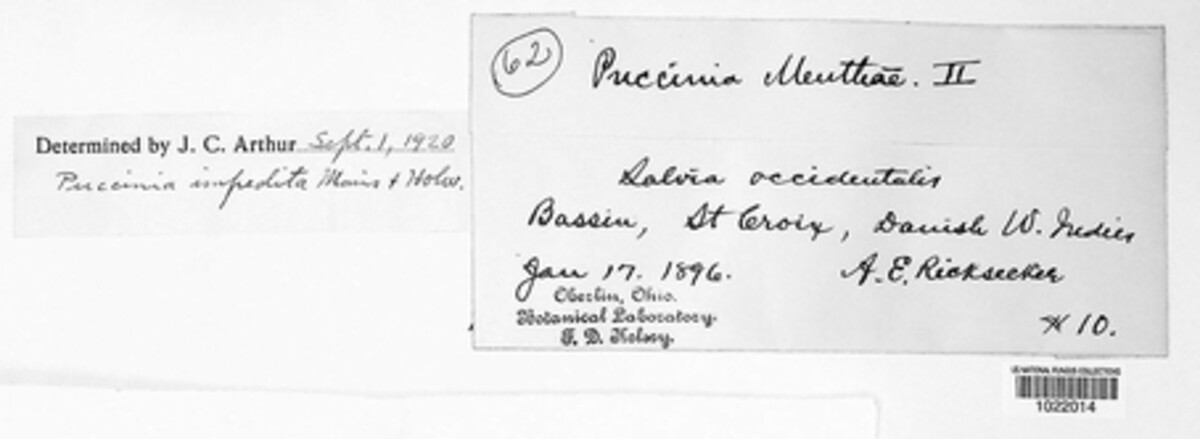 Determined by J. C. Arthur Sept. 1, 1920
Puccinia impedita Mains & Holw.
62
Puccinia Menthae. II
Salvia occidentalis
Bassin, St Croix, Danish W. Indies
Jan 17. 1896. A. E. Ricksecker
Oberlin, Ohio.
Botanical Laboratory.
F. D. Kelsey.
# 10.
US NATIONAL FUNGUS COLLECTIONS
1022014